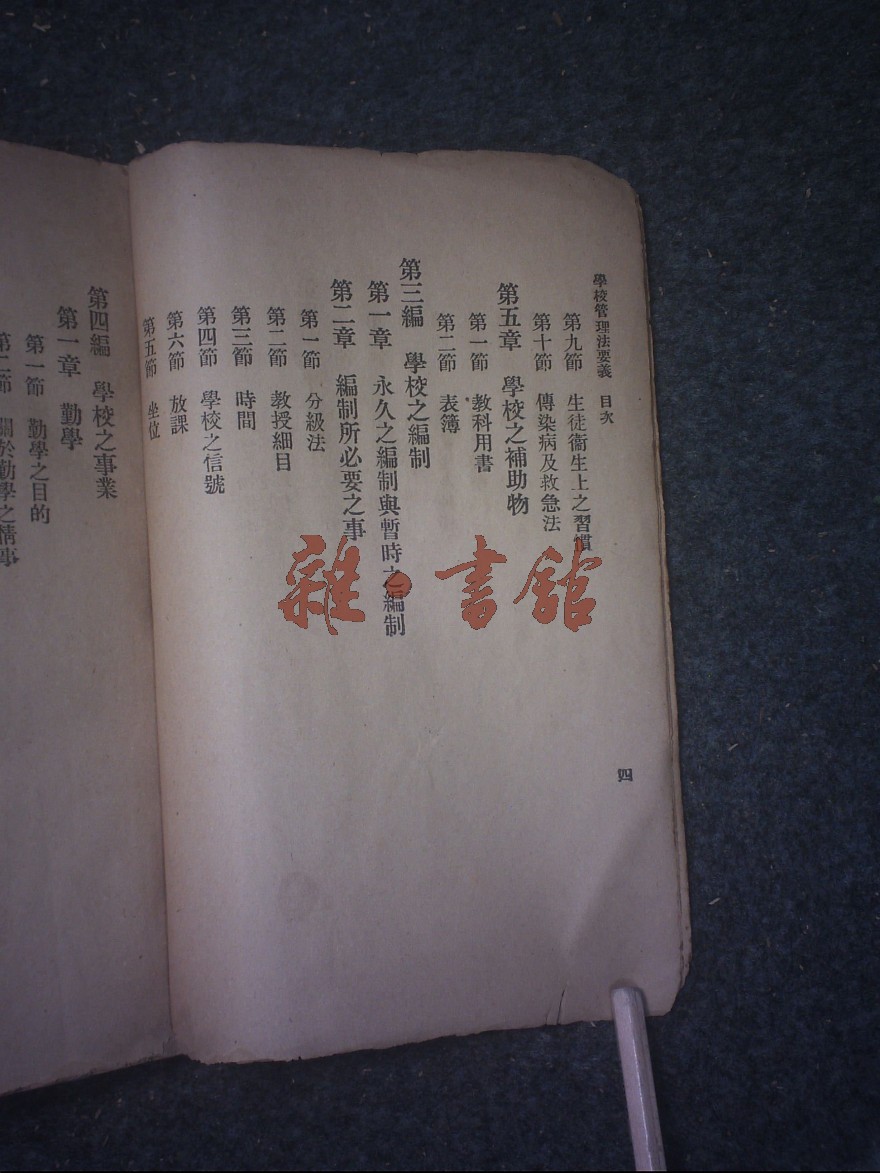 學校管理法要義 目次
第九節 生徒衞生上之習慣
第十節 傳染病及救急法
第五章 學校之補助物
第一節 教科用書
第二節 表簿
第三編 學校之編制
第一章 永久之編制與暫時之編制
第二章 編制所必要之事
第一節 分級法
第二節 教授細目
第三節 時間
第四節 學校之信號
第六節 放課
第五節 坐位
四
第四編 學校之事業
第一章 勤學
第一節 勤學之目的
第二節 關於勤學之情事
雜·書館